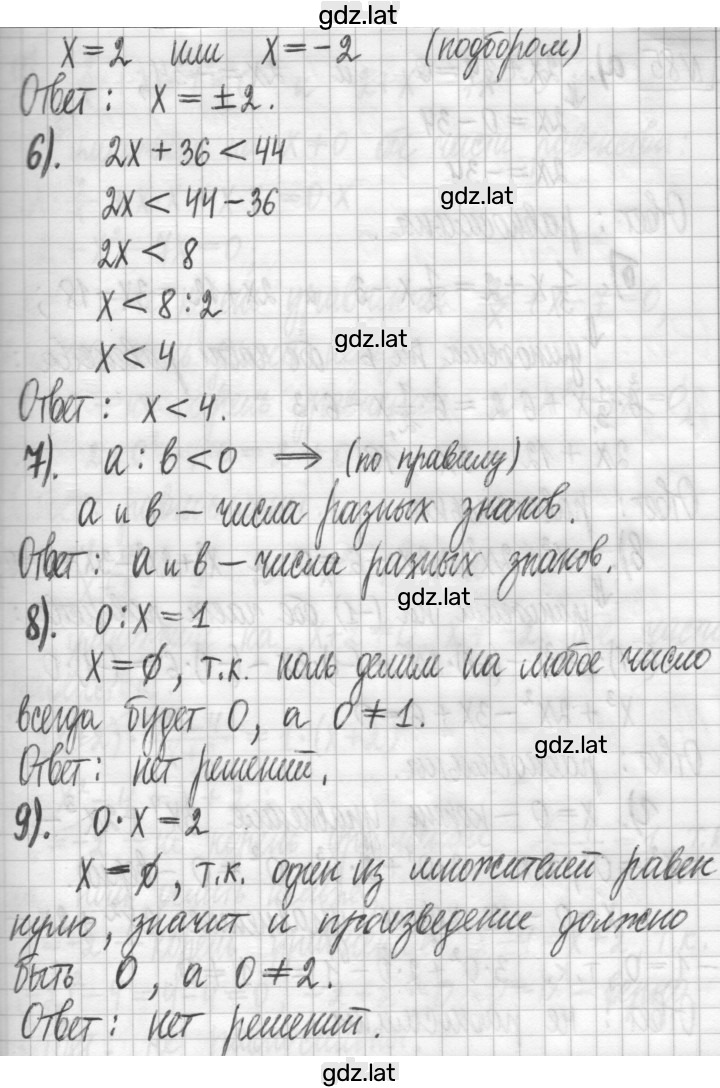 gdz.lat
x = 2 или x = -2 (подбором)
Ответ: x = ±2.
6). 2x + 36 < 44
2x < 44 - 36
gdz.lat
2x < 8
x < 8 : 2
gdz.lat
x < 4
Ответ: x < 4.
7). a : b < 0 ⟹ (по правилу)
a и b – числа разных знаков.
Ответ: a и b – числа разных знаков.
gdz.lat
8). 0 : x = 1
x = ∅, т.к. ноль делим на любое число
всегда будет 0, а 0 ≠ 1.
gdz.lat
Ответ: нет решений.
9). 0 · x = 2
x = ∅, т.к. один из множителей равен
нулю, значит и произведение должно
быть 0, а 0 ≠ 2.
Ответ: нет решений.
gdz.lat